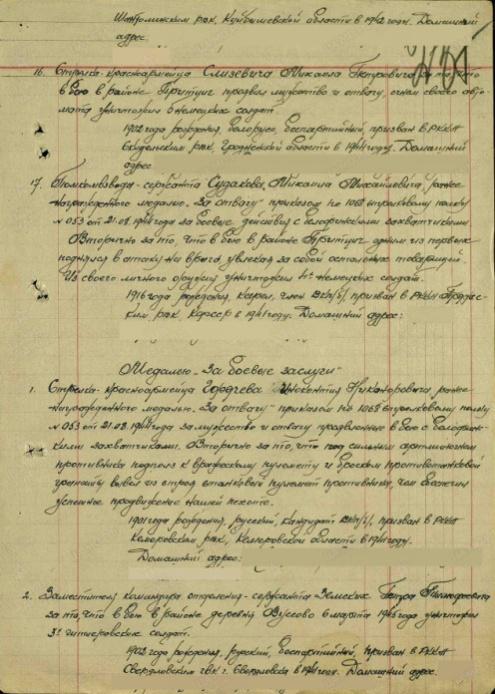 Шенталинским рвк, Куйбышевской области в 1942 году. Домашний
адрес.
16. Стрелка-красноармейца Слизевича Михаила Петровича за то, что
в бою в районе Притциг проявил мужество и отвагу, огнем своего авто-
мата уничтожил немецких солдат.
1902 года рождения, белорус, беспартийный, призван в РККА
Гродненской области в 1944 году. Домашний
адрес
17. Помкомвзвода-сержанта Судакова, Михаила Михайловича, ранее
награжденного медалью "За отвагу" приказом по 1068 стрелковому полку
№ 053 от 21.08.1944 года за боевые действия с белофинскими захватчиками
Вторично за то, что в бою в районе Притциг одним из первых
поднялся в атаку на врага, увлекая за собой остальных товарищей.
Из своего личного оружия уничтожил 4х немецких солдат.
1916 года рождения, карел, член ВКП/б/, призван в РККА
ким, рвк КФССР в 1941 году. Домашний адрес:
Медалью "За боевые заслуги"
1. Стрелка-красноармейца Гордеева Иннокентия Никаноровича, ранее
награжденного медалью "За отвагу" приказом по 1068 стрелковому полку
№ 053 от 21.08.1944 за мужество и отвагу проявленные в бою с белофин-
скими захватчиками. Вторично за то, что под сильным артогнем
противника подполз к вражескому пулемету и броском противотанковой
гранаты вывел из строя станковый пулемет противника, чем обеспечил
успешное продвижение нашей пехоте.
1901 года рождения, русский, кандидат ВКП/б/, призван в РККА
Кемеровским рвк, Кемеровской области в 1941 году.
Домашний адрес:
2. Заместителя командира отделения-сержанта Земских Петра
за то, что в бою в районе деревни Вуссово в марте 1945 года уничтожил
3х гитлеровских солдат.
1902 года рождения, русский, беспартийный, призван в РККА
Свердловским гвк г. Свердловска в 1941 году. Домашний адрес.